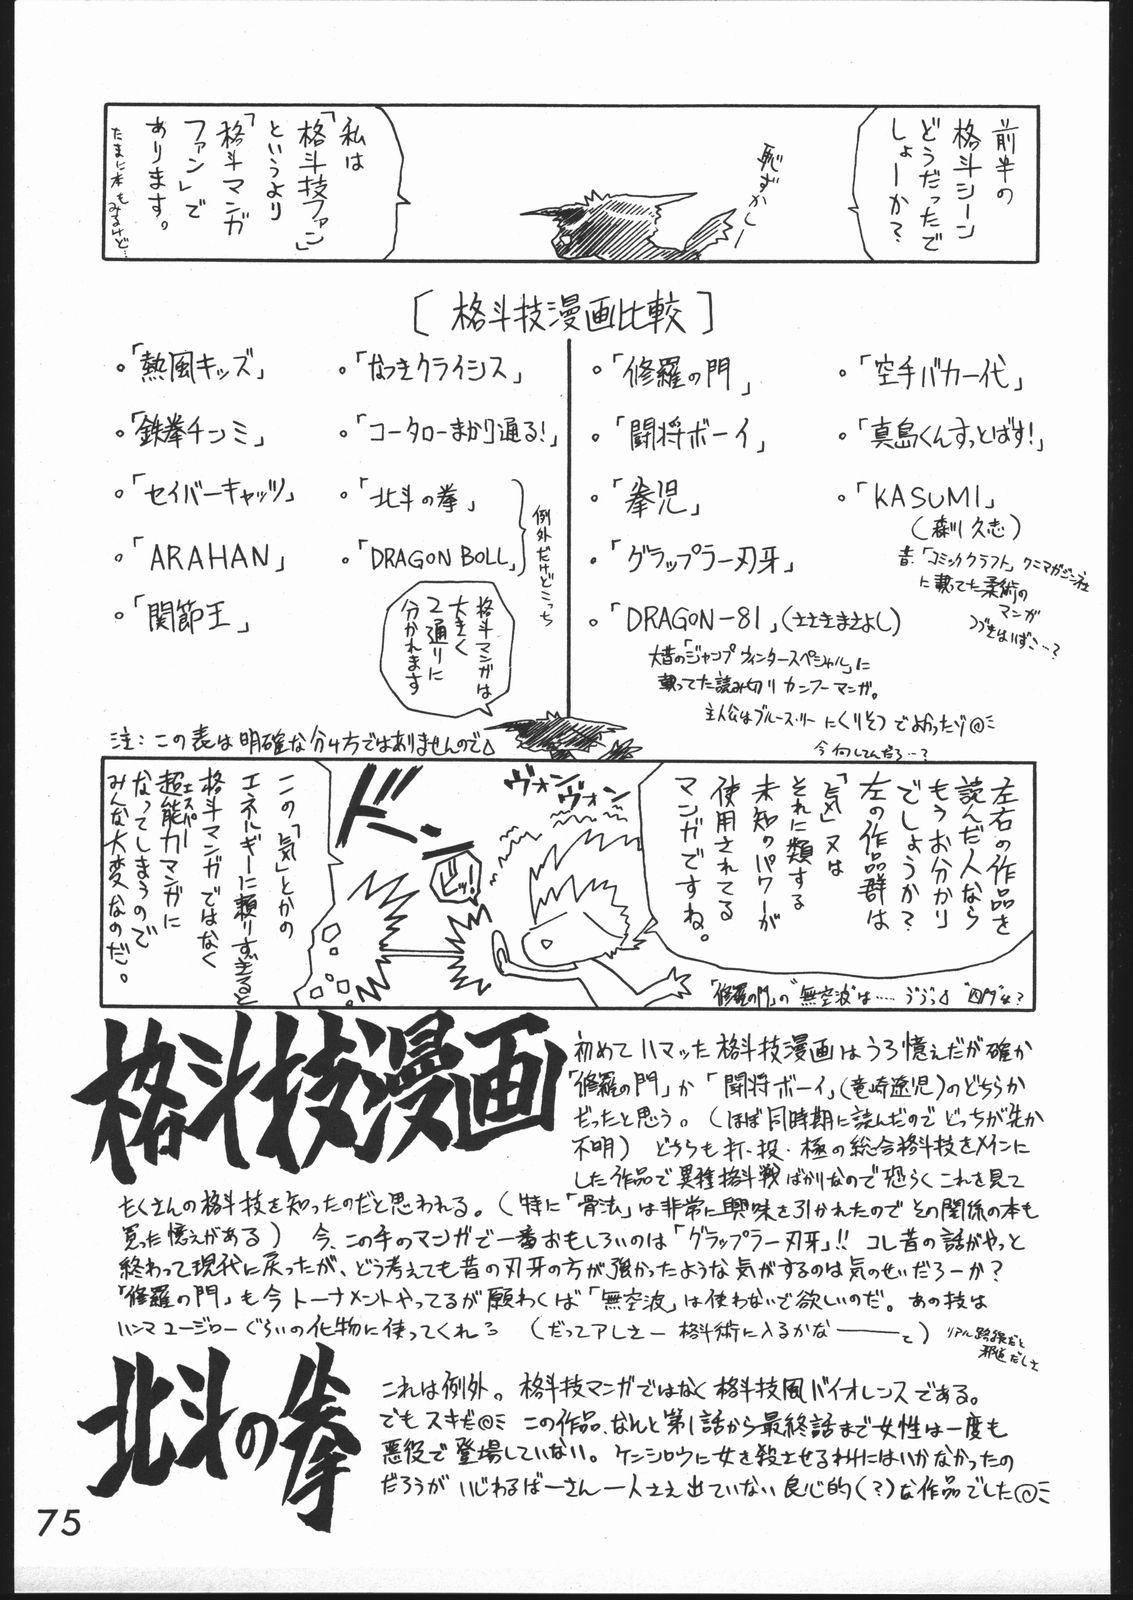 前半の
格斗シーン
どうだったで
しょーか?
恥ずかしー
私は
「格斗技ファン」
というより
「格斗マンガ
ファン」で
あります。
たまに本もみるけど…
[格斗技漫画比較]
。「熱風キッズ」
。「鉄拳チンミ」
。「セイバーキャッツ」
。「ARAHAN」
。「関節王」
。「なつきクライシス」
。「コータローまかり通る!」
。「北斗の拳」
。「DRAGON BOLL」
例外だけどこっち
。「修羅の門」
。「闘将ボーイ」
。「拳児」
。「グラップラー刃牙」
。「DRAGON-81」(ささきまさよし)
大昔の「ジャンプウィンタースペシャル」に
載ってた読み切りカンフーマンガ。
主人公はブルース・リーにくりそつでよかったゾ@ミ
今何してんだろ…?
。「空手バカ一代」
。「真島くんすっとばす!」
。「KASUMI」
(森川久志)
昔「コミッククラフト」クニマガジン社
に載ってた柔術の
マンガ
つづきはいずこ…?
格斗マンガは
大きく
2通りに
分かれます
注:この表は明確な分け方ではありませんので
左右の作品を
読んだ人なら
もうお分かり
でしょうか?
左の作品群は
「気」又は
それに類する
未知のパワーが
使用されてる
マンガですね。
「修羅の門」の"無空波"は……
ヴォン
ヴォン
ドン
ビッ!
この「気」とかの
エネルギーに頼りすぎると
格斗マンガではなく
超能力マンガに
エスパー
なってしまうので
みんな大変なのだ。
格斗技漫画
初めてハマッた格斗技漫画はうろ憶えだが確か
「修羅の門」か「闘将ボーイ」(竜崎遼児)のどちらか
だったと思う。(ほぼ同時期に読んだのでどっちが先か
不明)どちらも打・投・極の総合格斗技をメインに
した作品で異種格斗戦ばかりなので恐らくこれを見て
たくさんの格斗技を知ったのだと思われる。(特に「骨法」は非常に興味を引かれたのでその関係の本も
買った憶えがある)今、この手のマンガで一番おもしろいのは「グラップラー刃牙」!!コレ昔の話がやっと
終わって現代に戻ったが、どう考えても昔の刃牙の方が強かったような気がするのは気のせいだろーか?
「修羅の門」も今トーナメントやってるが願わくば「無空波」は使わないで欲しいのだ。あの技は
ハンマユージローぐらいの化物に使ってくれ
(だってアレさー格斗術に入るかな――と)
リアル路線だと
邪道だしさ
北斗の拳
これは例外。格斗技マンガではなく格斗技風バイオレンスである。
でもスキだ@ミ この作品、なんと第1話から最終話まで女性は一度も
悪役で登場していない。ケンシロウに女を殺させるわけにはいかなかったの
だろうがいじわるばーさん一人さえ出ていない良心的(?)な作品でした@ミ
75